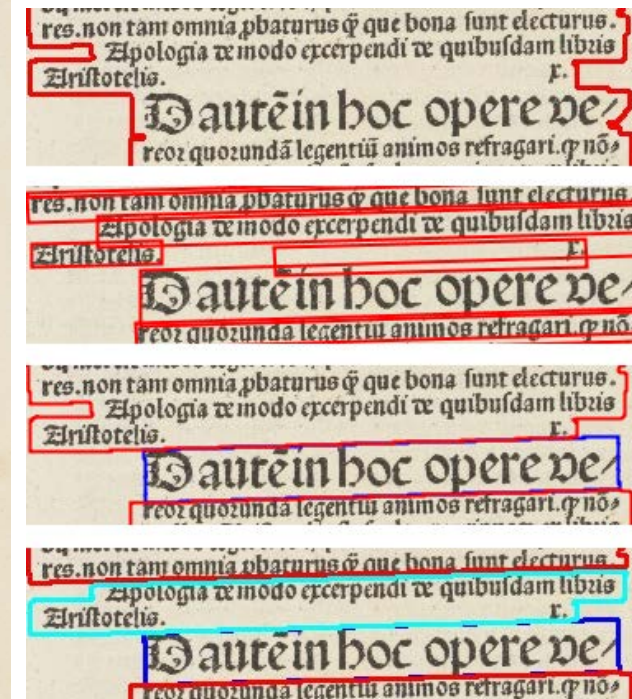 res.non tam omnia ꝓbaturus ꝙ̃ que bona ſunt electurus.
Apologia de modo excerpendi de quibuſdam libris
Ariſtotelis. x.
D autē in hoc opere ve⸗
reor quorundā legentiū animos refragari. ꝙ nō⸗
res.non tam omnia ꝓbaturus ꝙ̃ que bona ſunt electurus
Apologia de modo excerpendi de quibuſdam libris
Ariſtotelis. x.
D autē in hoc opere ve⸗
reor quorundā legentiū animos refragari. ꝙ nō
res.non tam omnia ꝓbaturus ꝙ̃ que bona ſunt electurus.
Apologia de modo excerpendi de quibuſdam libris
Ariſtotelis. x.
D autē in hoc opere ve⸗
reor quorundā legentiū animos refragari. ꝙ nō⸗
res.non tam omnia ꝓbaturus ꝙ̃ que bona ſunt electurus.
Apologia de modo excerpendi de quibuſdam libris
Ariſtotelis. x.
D autē in hoc opere ve⸗
reor quorundā legentiū animos refragari. ꝙ nō⸗